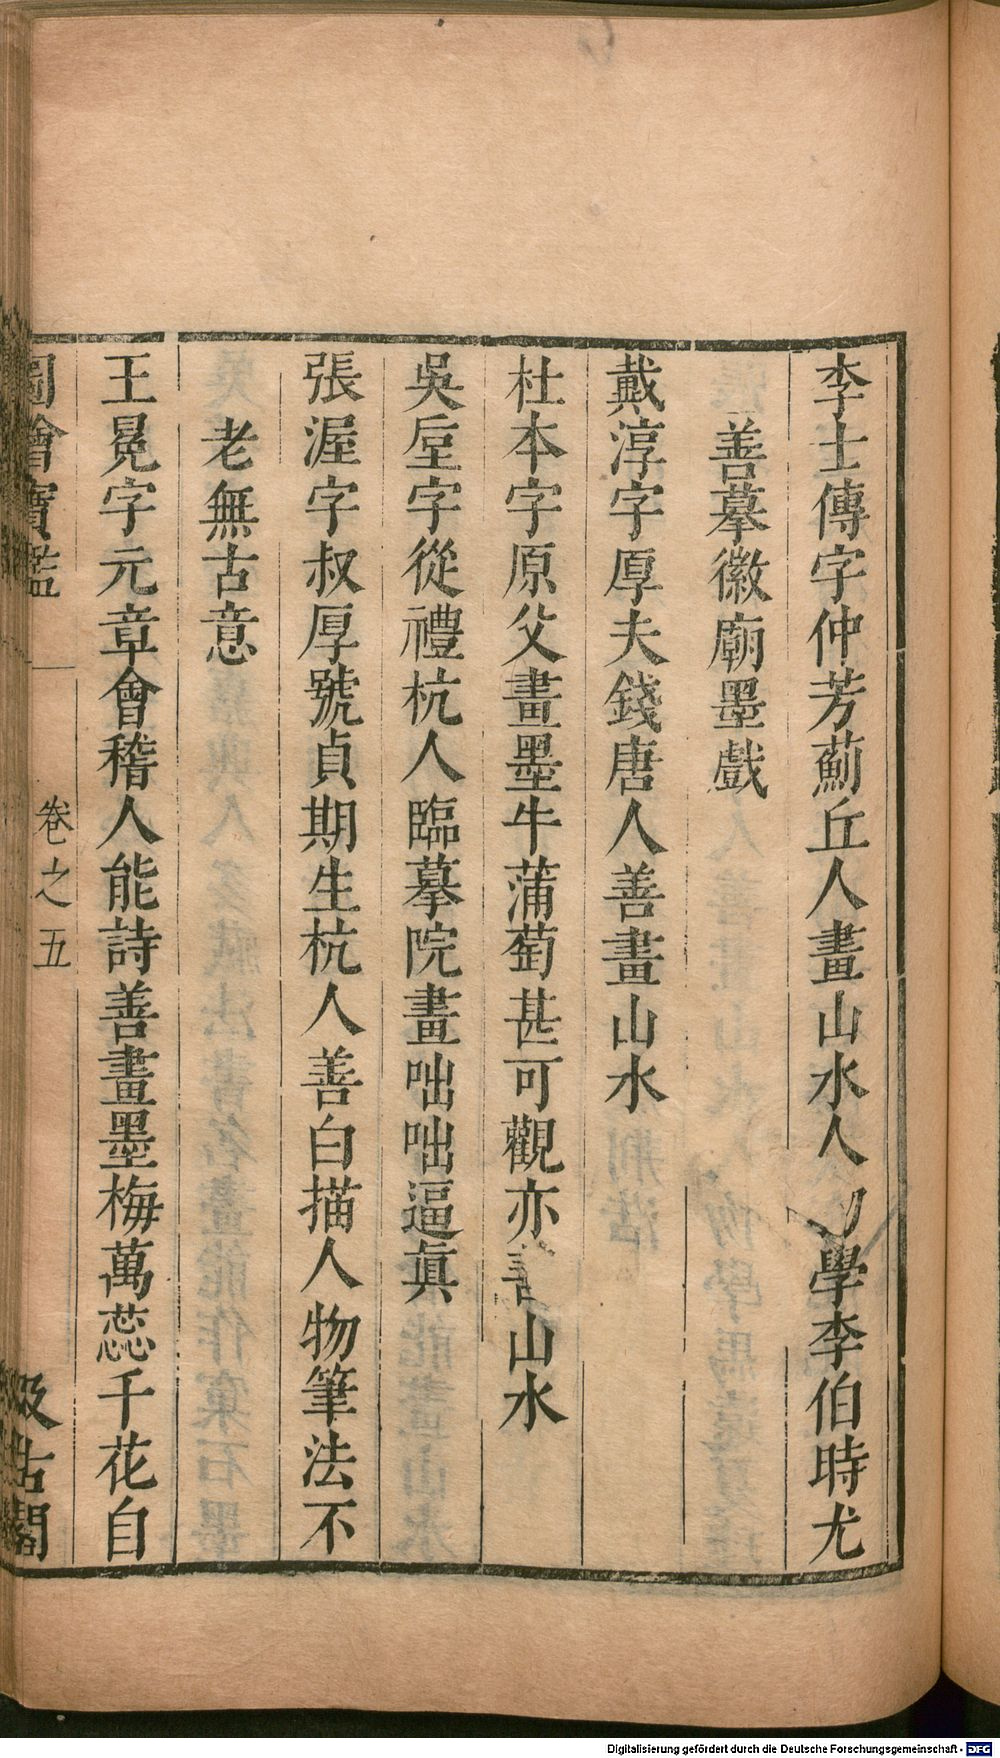 李士傳字仲芳薊丘人畫山水人物學李伯時尤
善摹徽廟墨戲
戴淳字厚夫錢唐人善畫山水
杜本字原父畫墨牛蒲萄甚可觀亦善山水
吳庢字從禮杭人臨摹院畫咄咄逼眞
張渥字叔厚號貞期生杭人善白描人物筆法不
老無古意
王冕字元章會稽人能詩善畫墨梅萬蕊千花自
圖會寶鑑 卷之五 汲古閣
Digitalisierung gefördert durch die Deutsche Forschungsgemeinschaft - DFG